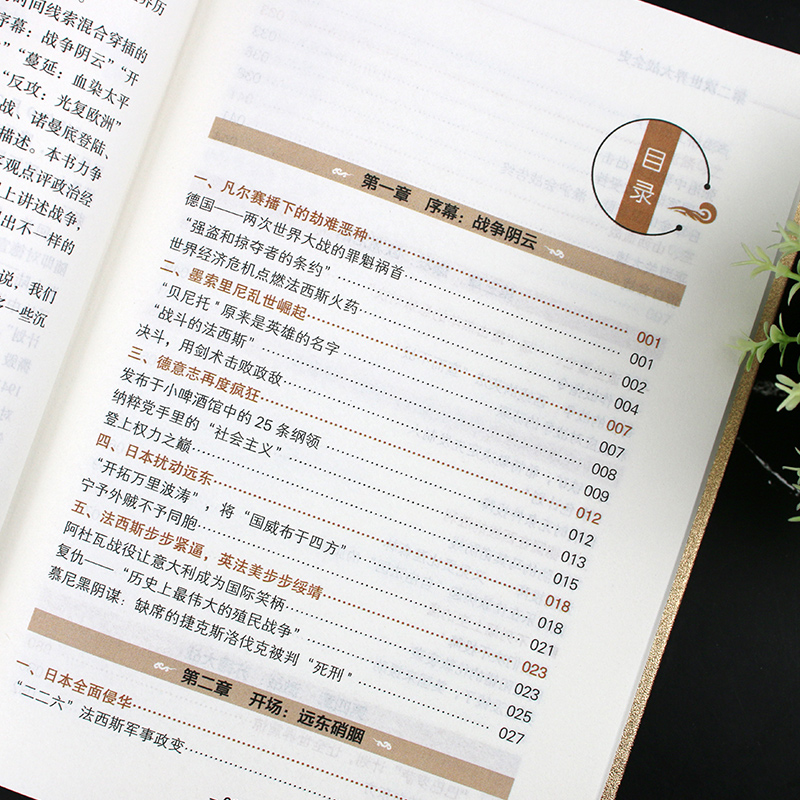 时间线索混合穿插的
序幕：战争阴云”“开
”“蔓延：血染太平
“反攻：光复欧洲”
战、诺曼底登陆、
描述。本书力争
客观点评政治经
上讲述战争，
出不一样的
说，我们
一些沉
目录
第一章 序幕：战争阴云
一、凡尔赛播下的劫难恶种 001
德国——两次世界大战的罪魁祸首 001
“强盗和掠夺者的条约” 002
世界经济危机点燃法西斯火药 004
二、墨索里尼乱世崛起 007
“贝尼托”原来是英雄的名字 007
“战斗的法西斯” 008
决斗，用剑术击败政敌 009
三、德意志再度疯狂 012
发布于小啤酒馆中的 25 条纲领 012
纳粹党手里的“社会主义” 013
登上权力之巅 015
四、日本扰动远东 018
“开拓万里波涛”，将“国威布于四方” 018
宁予外贼不予同胞 021
五、法西斯步步紧逼，英法美步步绥靖 023
阿杜瓦战役让意大利成为国际笑柄 023
复仇——“历史上最伟大的殖民战争” 025
慕尼黑阴谋：缺席的捷克斯洛伐克被判“死刑” 027
第二章 开场：远东硝烟
一、日本全面侵华
“二二六”法西斯军事政变